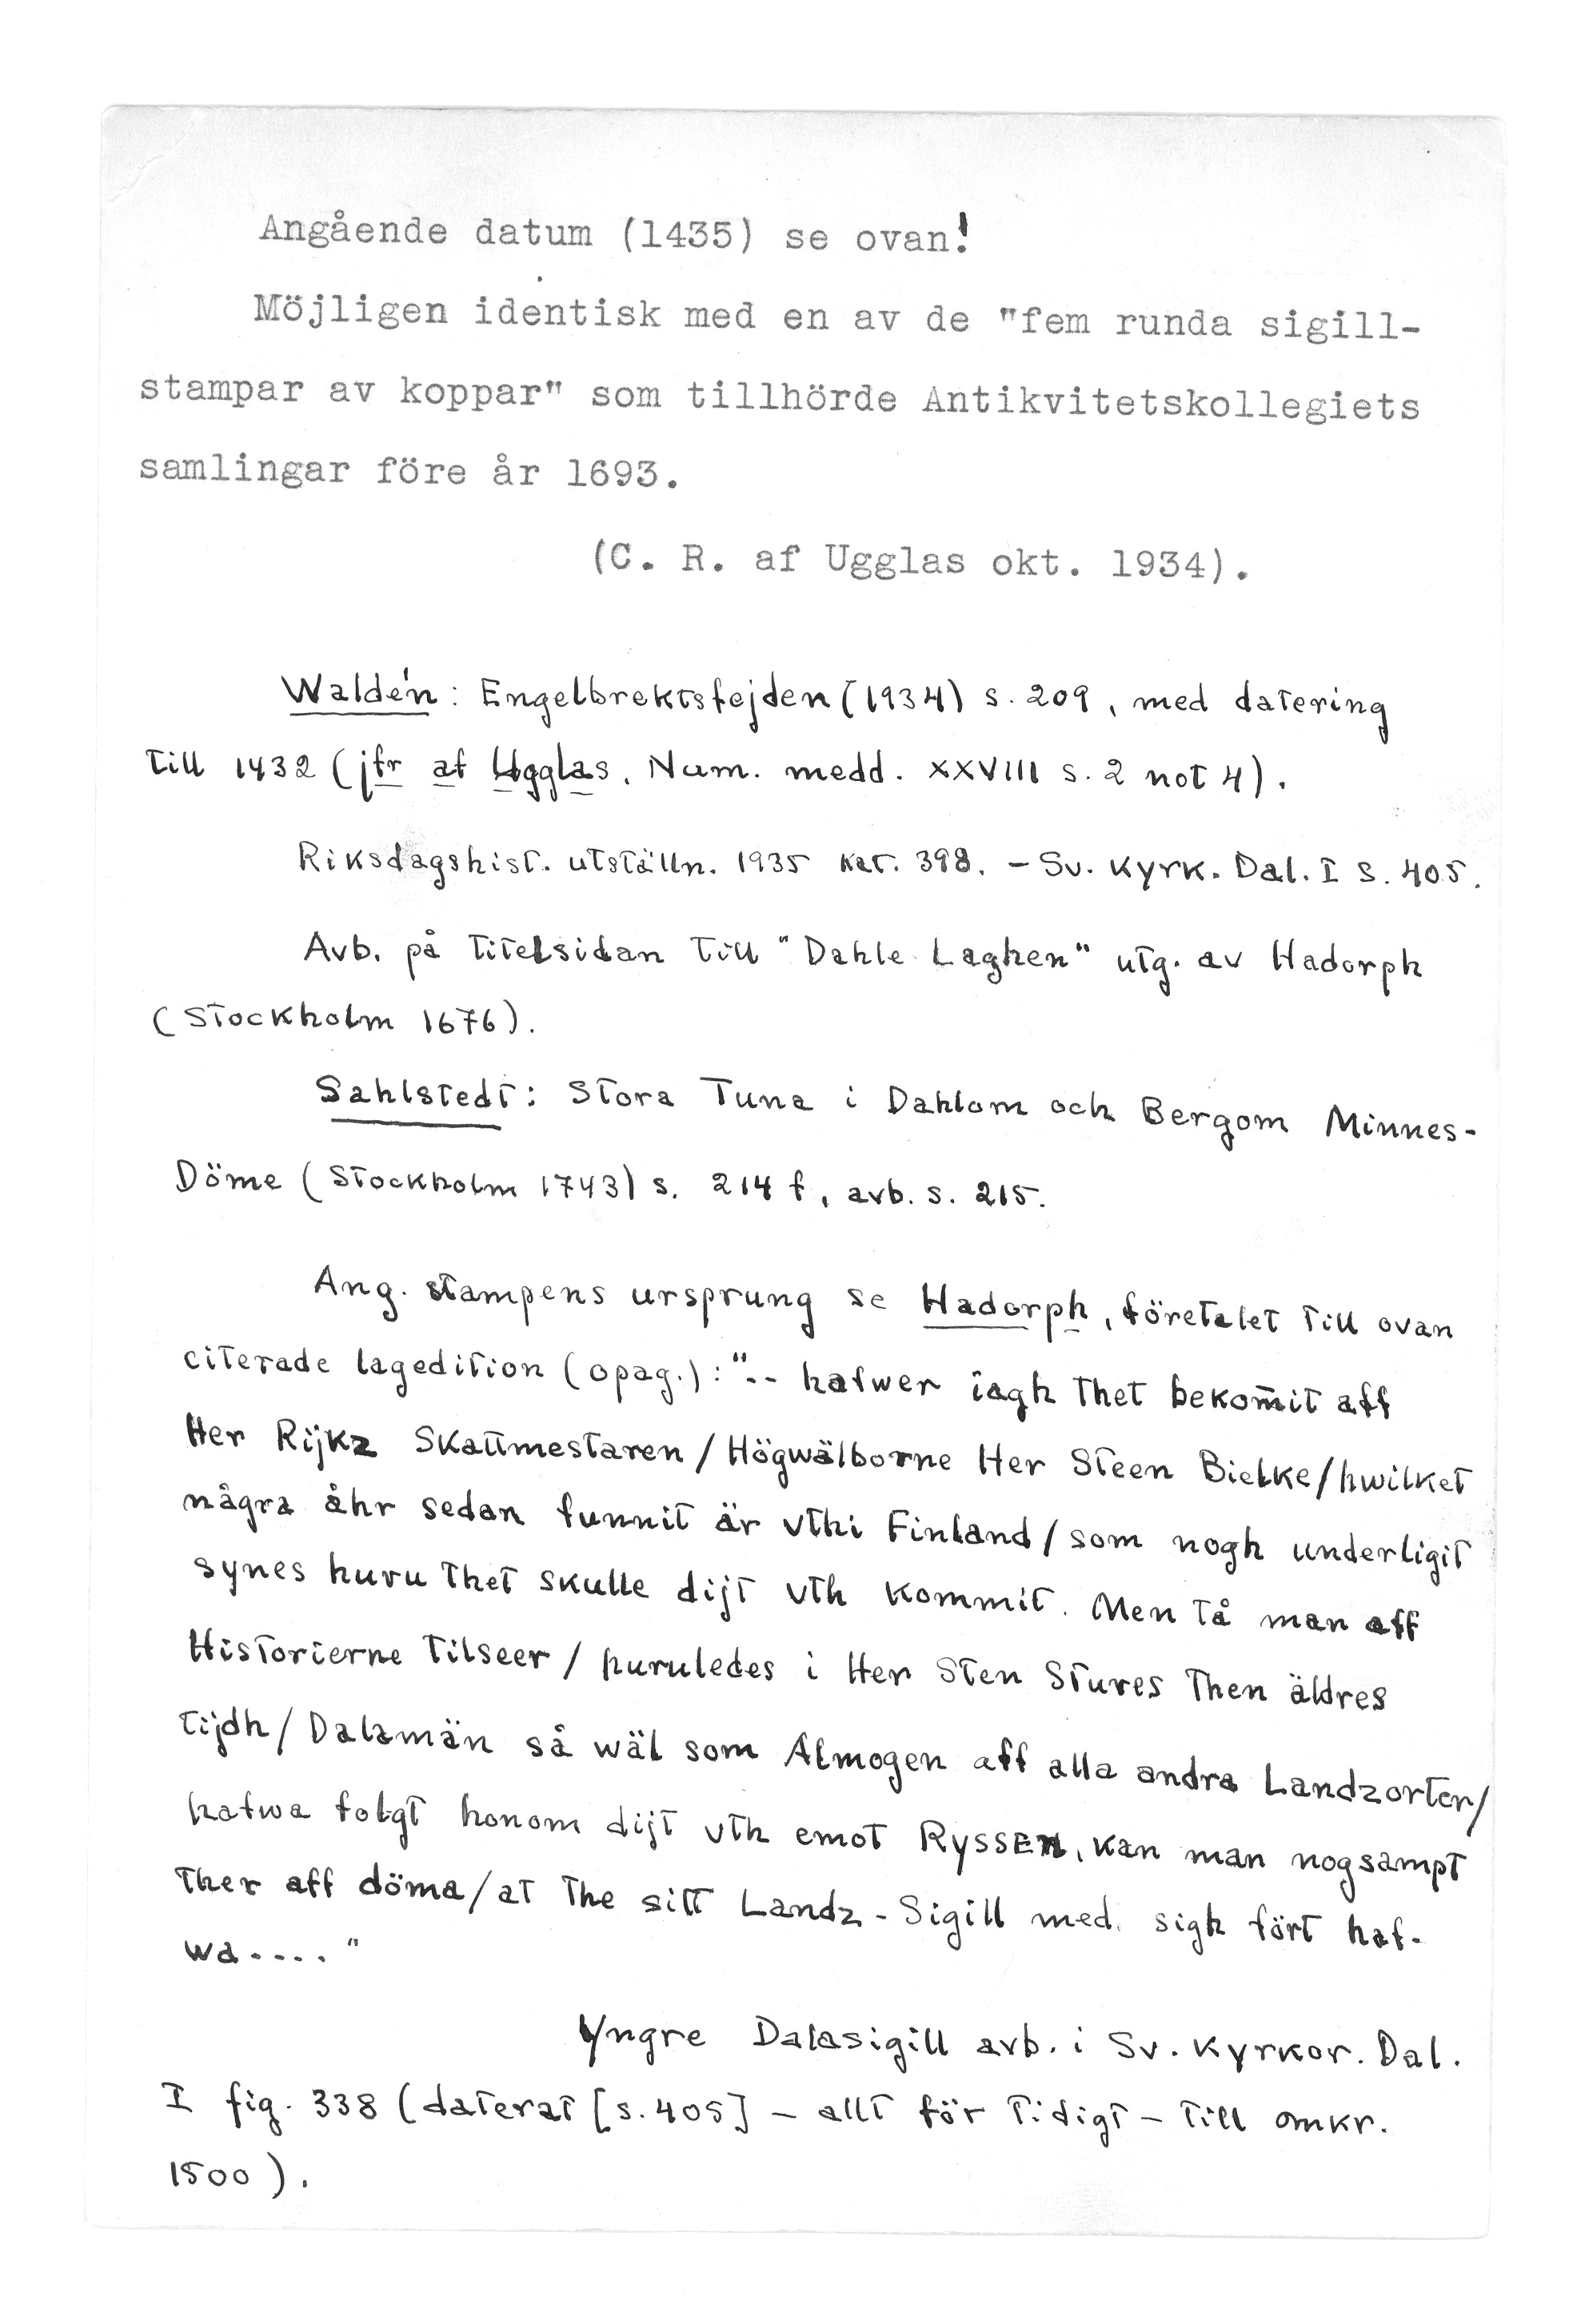 Angående datum (1435) se ovan!
Möjligen identisk med en av de "fem runda sigill-
stampar av koppar" som tillhörde Antikvitetskollegiets
samlingar före år 1693.
(C. R. af Ugglas okt. 1934).
Waldén: Engelbrektsfejden (1934) s. 209, med datering
till 1432 (jfr af Ugglas, Num. medd. XXVIII s. 2 not 4).
Riksdagshist. utställn. 1935 kat. 398. - Sv. Kyrk. Dal. I s. 405.
Avb. på titelsidan till "Dahle Laghen" utg. av Hadorph
(Stockholm 1676).
Sahlstedt: Stora Tuna i Dahlom och Bergom Minnes-
Döme (Stockholm 1743) s. 214 f, avb. s. 215.
Ang. stampens ursprung se Hadorph, företalet till ovan
citerade lagedition (opag.): "-- hafwer iagh thet bekom̄it aff
Her Rijkz Skattmestaren / Högwälborne Her Steen Bielke / hwilket
några åhr sedan funnit är vthi Finland / som nogh underligit
synes huru thet skulle dijt vth kommit. Men tå man aff
Historierne tilseer / huruledes i Her Sten Stures then äldres
tijdh / Dalamän så wäl som Almogen aff alla andra Landzorter /
hafwa folgt honom dijt vth emot Ryssen, kan man nogsampt
ther aff döma / at the sitt Landz-Sigill med sigh fört haf-
wa ...."
Yngre Dalasigill avb. i Sv. Kyrkor. Dal.
I fig. 338 (daterat [s. 405] - allt för tidigt - till omkr.
1500).